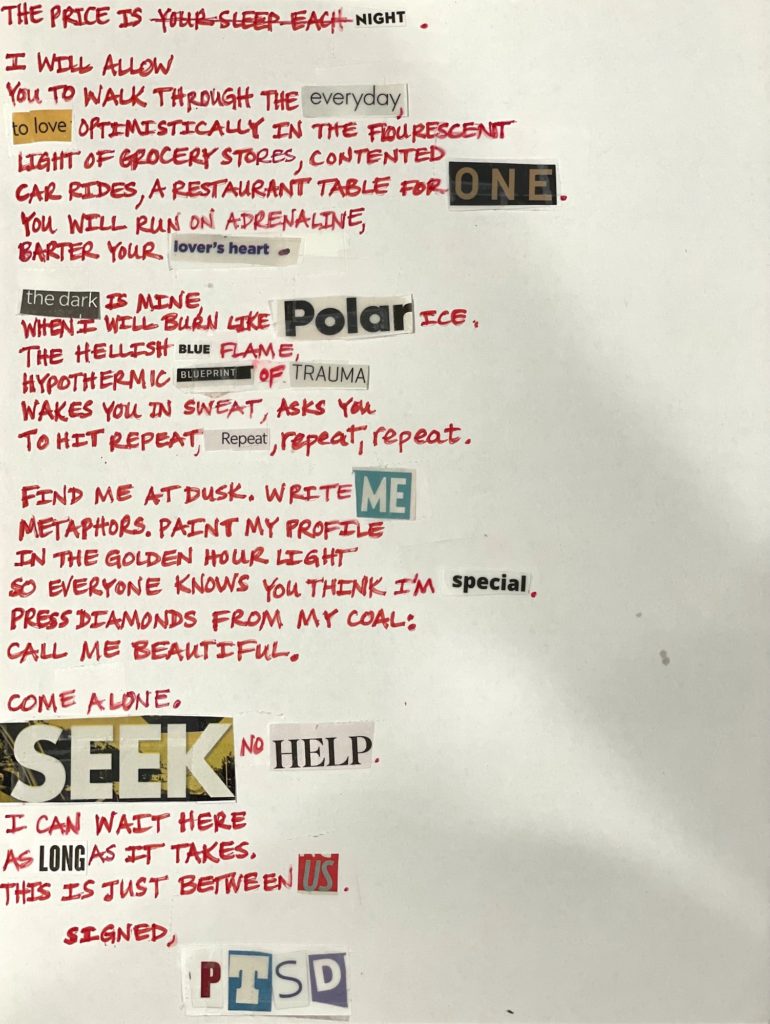 THE PRICE IS YOUR SLEEP EACH NIGHT.
I WILL ALLOW
YOU TO WALK THROUGH THE everyday,
to love OPTIMISTICALLY IN THE FLOURESCENT
LIGHT OF GROCERY STORES, CONTENTED
CAR RIDES, A RESTAURANT TABLE FOR ONE.
YOU WILL RUN ON ADRENALINE,
BARTER YOUR lover's heart.
the dark IS MINE,
WHEN I WILL BURN LIKE Polar ICE.
THE HELLISH BLUE FLAME,
HYPOTHERMIC BLUEPRINT OF TRAUMA
WAKES YOU IN SWEAT, ASKS YOU
TO HIT REPEAT, Repeat, repeat, repeat.
FIND ME AT DUSK. WRITE ME
METAPHORS. PAINT MY PROFILE
IN THE GOLDEN HOUR LIGHT
SO EVERYONE KNOWS YOU THINK I'M special.
PRESS DIAMONDS FROM MY COAL:
CALL ME BEAUTIFUL.
COME ALONE.
SEEK NO HELP.
I CAN WAIT HERE
AS LONG AS IT TAKES.
THIS IS JUST BETWEEN US.
SIGNED,
PTSD